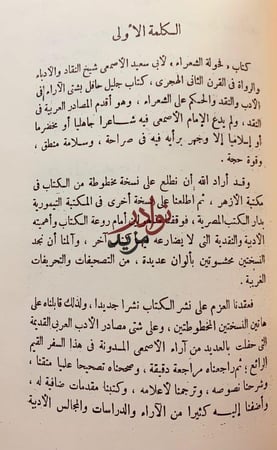 الكلمة الأولى
كتاب « فحولة الشعراء » لأبي سعيد الأصمعي شيخ النقاد والأدباء
والرواة في القرن الثاني الهجري ، كتاب جليل حافل بشتى الآراء في
الأدب والنقد والحكم على الشعراء ، وهو أقدم المصادر العربية في
النقد ، ولم يدع الإمام الأصمعي فيه شاعرا جاهليا أو مخضرما
أو إسلاميا إلا وجهر برأيه فيه في صراحة ، وسلامة منطق ،
وقوة حجة .
وقد أراد الله أن نطلع على نسخة مخطوطة من الكتاب في
مكتبة الأزهر ، ثم اطلعنا على نسخة أخرى في المكتبة التيمورية
بدار الكتب المصرية ، فوقفنا أمام روعة الكتاب وأهميته
الأدبية والنقدية التي لا يضارعه آخر ، وآلمنا أن نجد
النسختين محشوتين بألوان عديدة ، من التصحيفات والتحريفات
الغريبة .
فعقدنا العزم على نشر الكتاب نشرا جديدا ، ولذلك قابلناه على
هاتين النسختين المخطوطتين ، وعلى شتى مصادر الأدب العربى القديمة
التي حفلت بالعديد من آراء الأصمعي المدونة في هذا السفر القيم
الرائع ؛ ثم راجعناه مراجعة دقيقة ، وصححناه تصحيحا علميا متقنا ،
وشرحنا نصوصه ، وترجمنا لأعلامه ، وكتبنا مقدمات ضافية له ،
وأضفنا إليه كثيرا من الآراء والدراسات والمجالس الأدبية
نوادر
مزيد